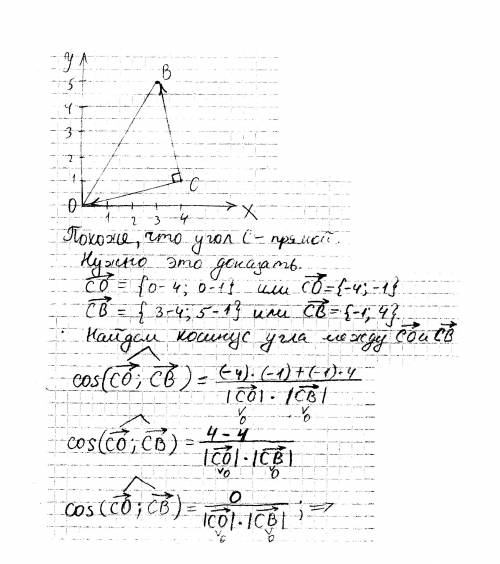 y
B
5
4
3
2
1
C
0 1 2 3 4 X
Похоже, что угол C – прямой.
Нужно это доказать.
CO = {0-4; 0-1} или CO = {-4; -1}
CB = {3-4; 5-1} или CB = {-1; 4}.
Найдем косинус угла между CO и CB
cos(CO; CB) = (-4)·(-1)+(-1)·4 / |CO|·|CB|
v v
0 0
cos(CO; CB) = 4-4 / |CO|·|CB|
v0 v0
cos(CO; CB) = 0 / |CO|·|CB| ; =>
v v
0 0